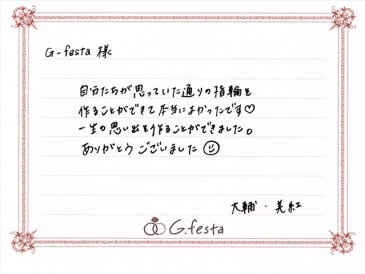 G-festa 様
自分たちが思っていた通りの指輪を
作ることができて本当によかったです♡
一生の思い出を作ることができました。
ありがとうございました☺
大輔・美紅
G.festa